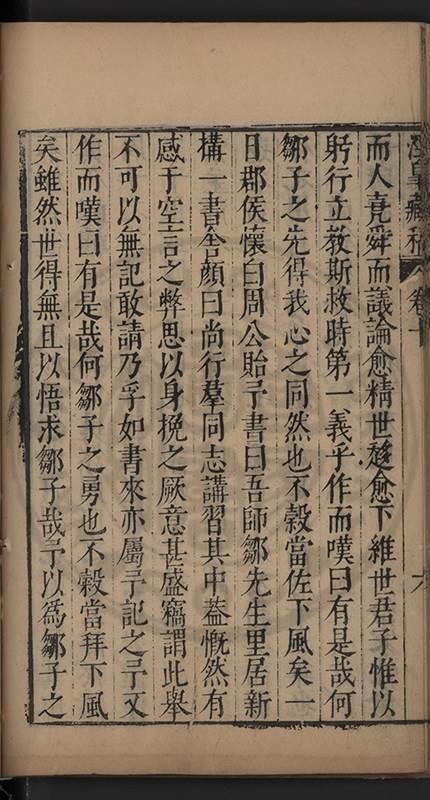 漪園藏稿 卷十 六
而人堯舜而議論愈精世趍愈下維世君子惟以
躬行立教斯救時第一義乎作而嘆曰有是哉何
鄒子之先得我心之同然也不穀當佐下風矣一
日郡侯懷白周公貽予書曰吾師鄒先生里居新
構一書舍顏曰尚行羣同志講習其中葢慨然有
感于空言之弊思以身挽之厥意甚盛竊謂此舉
不可以無記敢請乃孚如書來亦屬予記之予文
作而嘆曰有是哉何鄒子之勇也不穀當拜下風
矣雖然世得無且以悟求鄒子哉予以爲鄒子之